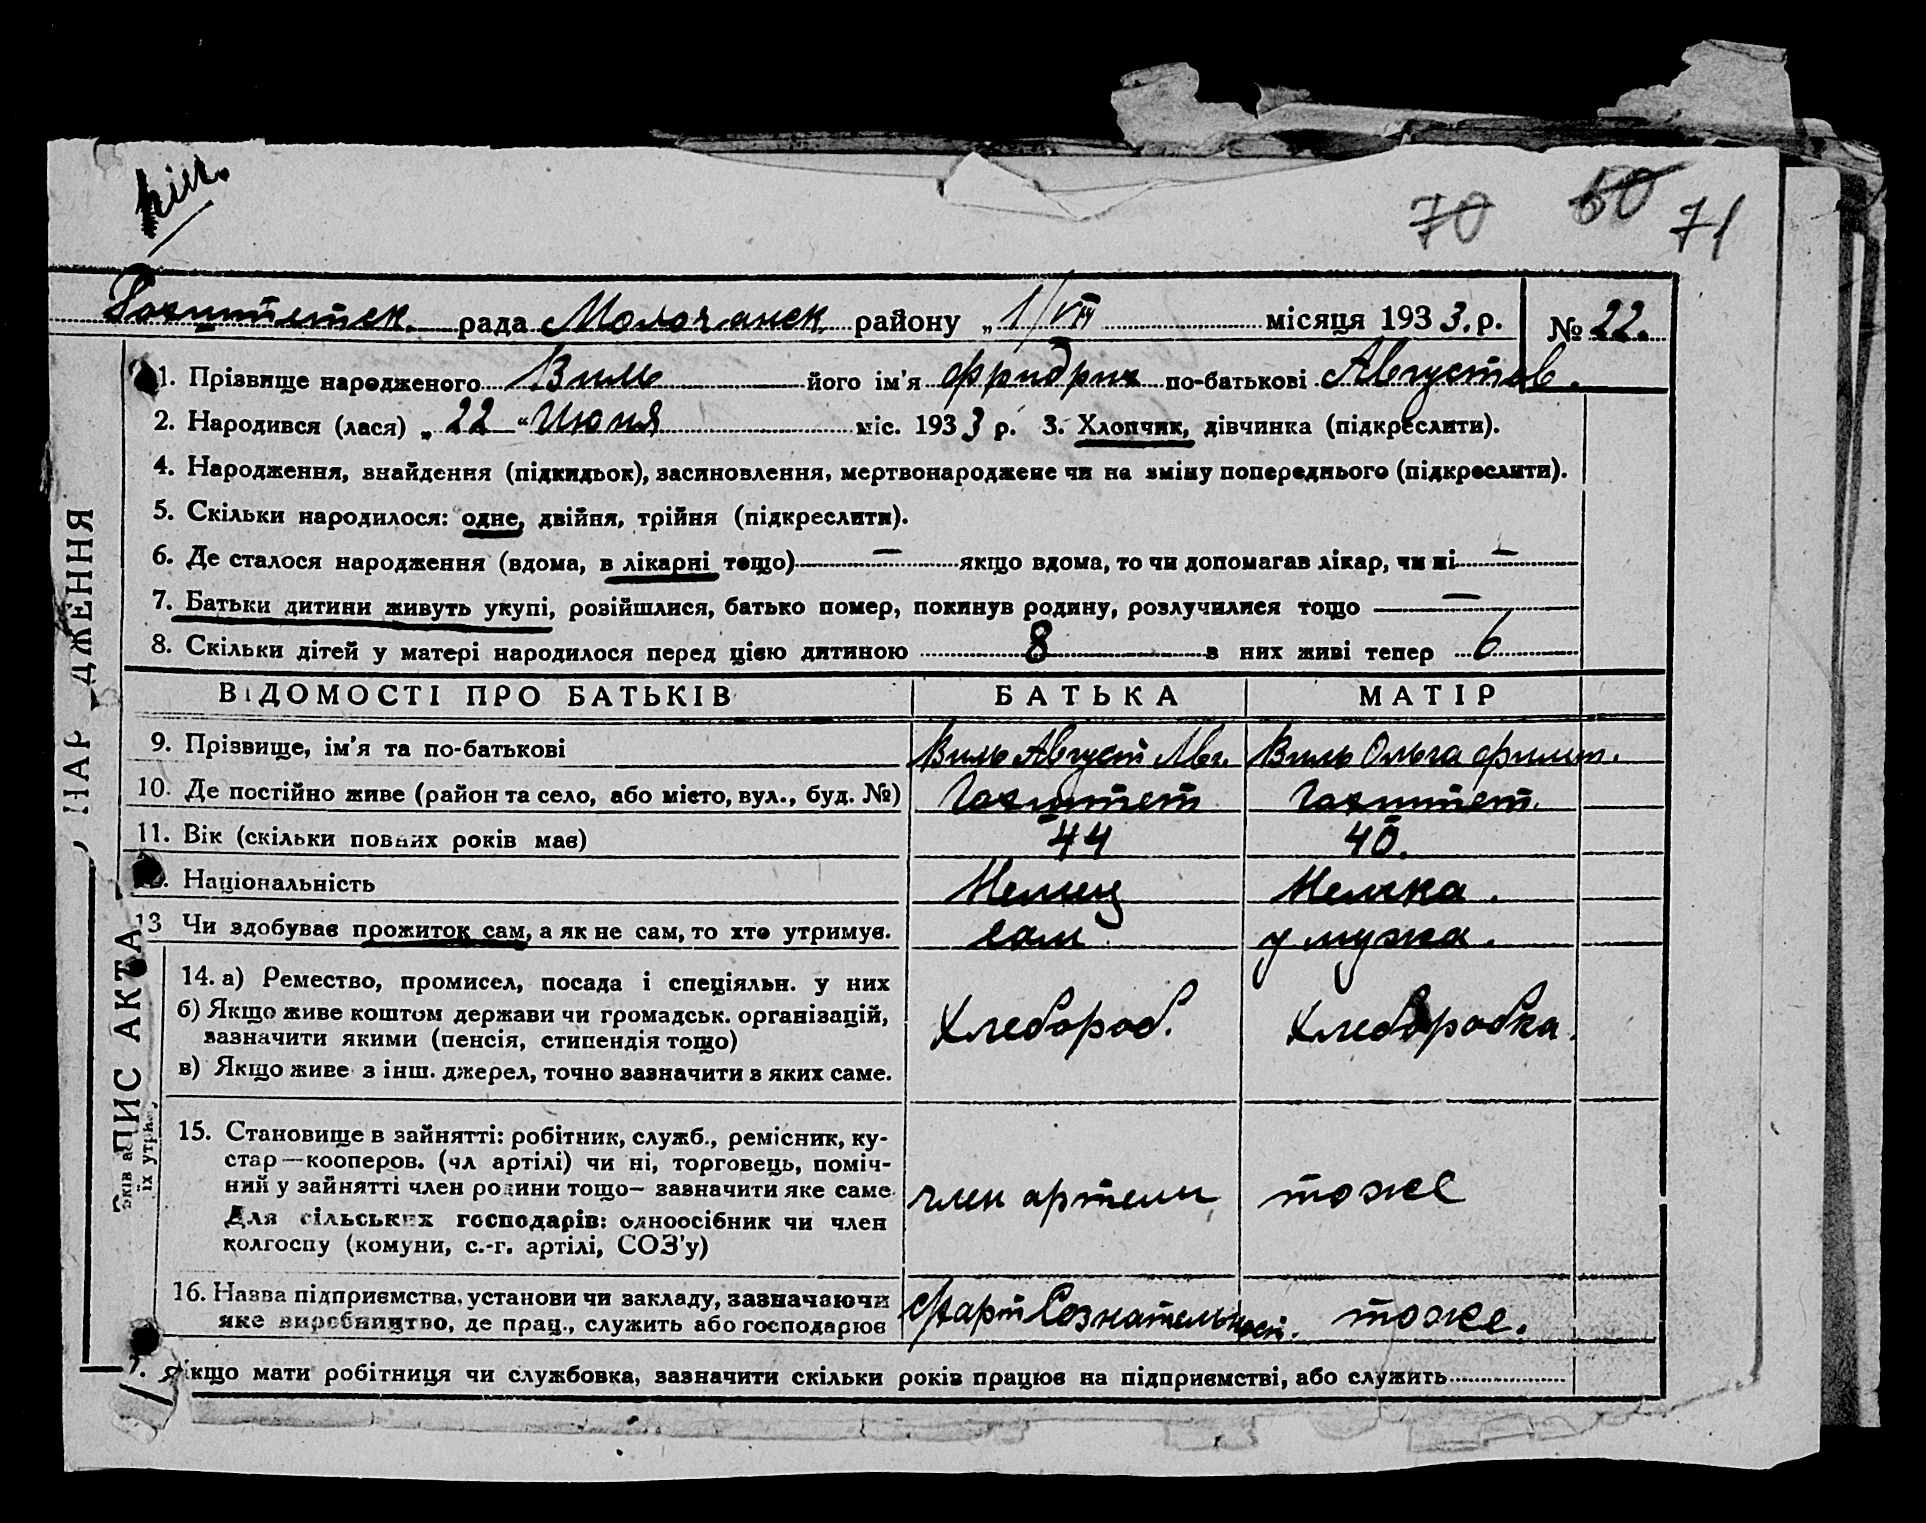 70 60 71
Гохштетск. рада Молочанск. району „1/VII місяця 1933. р. № 22.
1. Прізвище народженого Виль його ім’я Фридрих по-батькові Августов.
2. Народився (лася) „22“ Июня міс. 1933 р. 3. Хлопчик, дівчинка (підкреслити).
4. Народження, знайдення (підкидьок), засиновлення, мертвонароджене чи на зміну попереднього (підкреслити).
5. Скільки народилося: одне, двійня, трійня (підкреслити).
6. Де сталося народження (вдома, в лікарні тощо) — якщо вдома, то чи допомагав лікар, чи ні —
7. Батьки дитини живуть укупі, розійшлися, батько помер, покинув родину, розлучилися тощо —
8. Скільки дітей у матері народилося перед цією дитиною 8 з них живі тепер 6
ВІДОМОСТІ ПРО БАТЬКІВ БАТЬКА МАТІР
9. Прізвище, ім’я та по-батькові Виль Август Авг. Виль Ольга Филип.
10. Де постійно живе (район та село, або місто, вул., буд. №) Гохштет Гохштет.
11. Вік (скільки повних років має) 44 40.
Національність Немец Немка.
13 Чи здобуває прожиток сам, а як не сам, то хто утримує. сам у мужа.
14. а) Ремество, промисел, посада і спеціяльн. у них
б) Якщо живе коштом держави чи громадськ. організацій,
зазначити якими (пенсія, стипендія тощо) Хлебороб. Хлеборобка.
в) Якщо живе з інш. джерел, точно зазначити з яких саме.
15. Становище в зайнятті: робітник, служб., ремісник, ку-
стар—кооперов. (чл артілі) чи ні, торговець, поміч-
ний у зайнятті член родини тощо— зазначити яке саме член артели тоже
Для сільських господарів: одноосібник чи член
колгоспу (комуни, с.-г. артілі, СОЗ’у)
16. Назва підприємства, установи чи закладу, зазначаючи
яке виробництво, де прац., служить або господарює с/х арт Сознательност. тоже.
Якщо мати робітниця чи службовка, зазначити скільки років працює на підприємстві, або служить
ЗАПИС АКТА
НАР ДЖЕННЯ